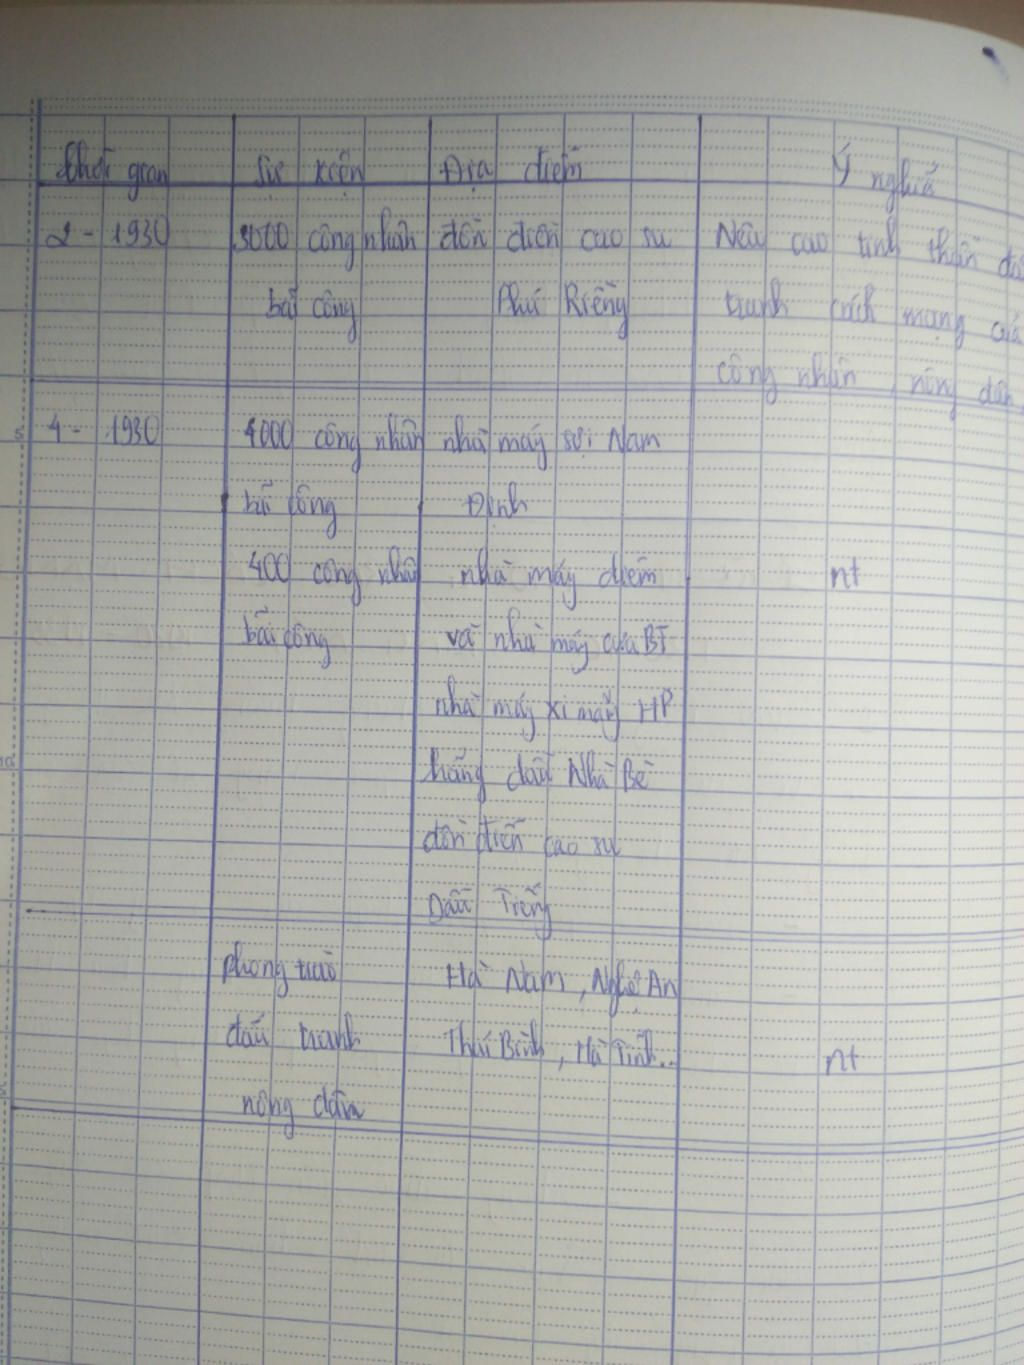 Thời gian Sự kiện Địa điểm Ý nghĩa
2 - 1930 3000 công nhân đồn điền cao su Nêu cao tinh thần
bãi công Phú Riềng tranh cách mạng của
công nhân, nông dân,
4 - 1930 4000 công nhân nhà máy sợi Nam
bãi công Định
400 công nhân nhà máy diêm nt
bãi công và nhà máy cưa BT
nhà máy xi măng HP
hãng dầu Nhà Bè
đồn điền cao su
Dầu Tiếng
phong trào Hà Nam, Nghệ An
đấu tranh Thái Bình, Hà Tĩnh... nt
nông dân